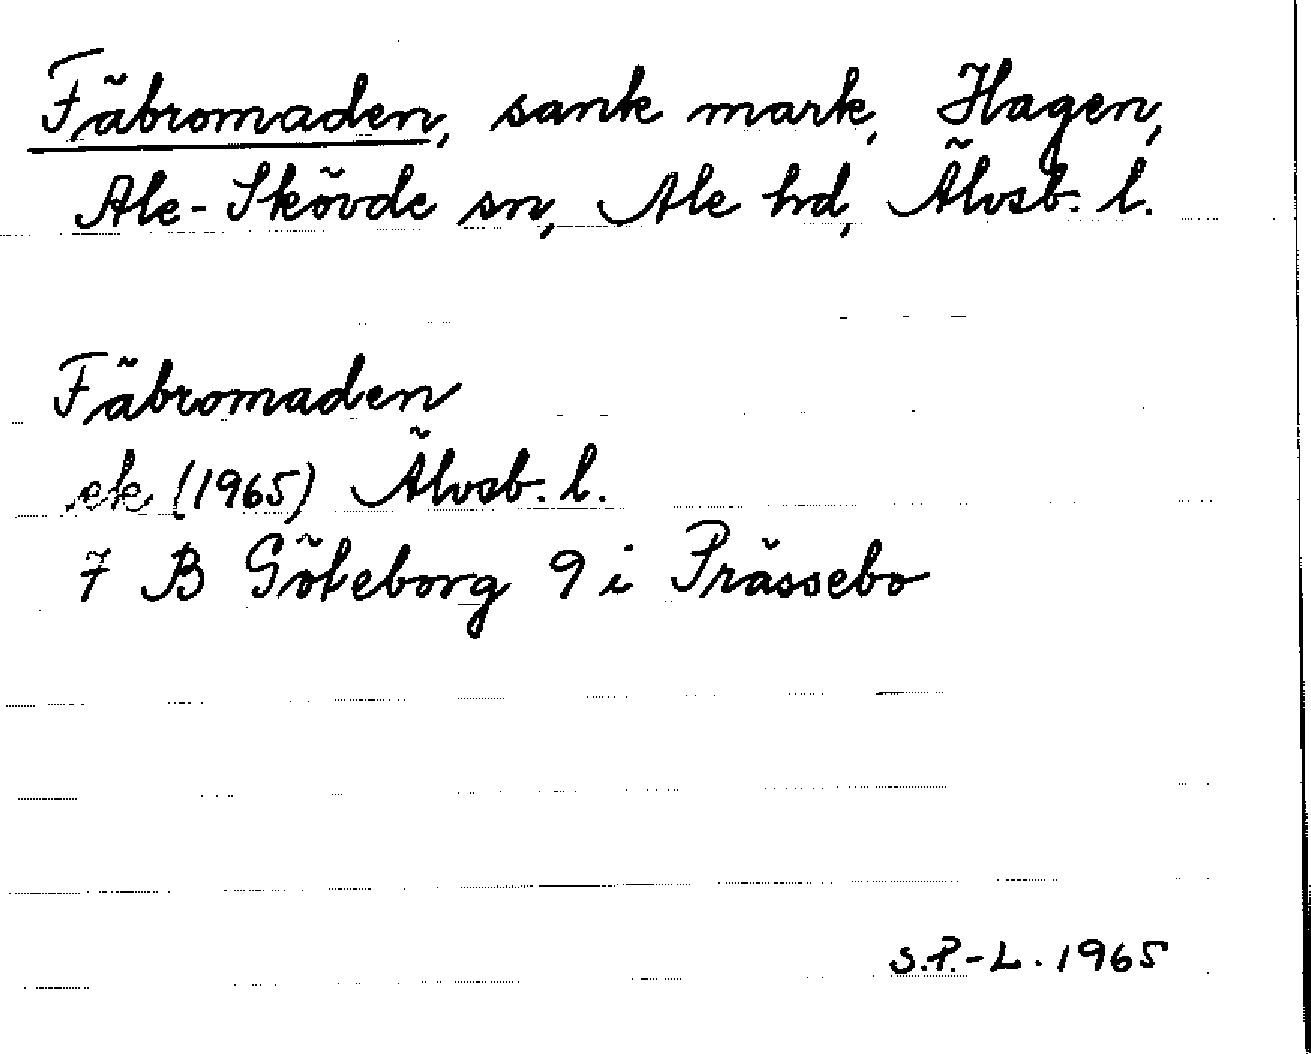 Fäbromaden, sank mark, Hagen,
Ale-Skövde sn, Ale hd, Älvsb. l.
Fäbromaden
ek (1965) Älvsb. l.
7 B Göteborg 9 i Prässebo
S.P.-L. 1965